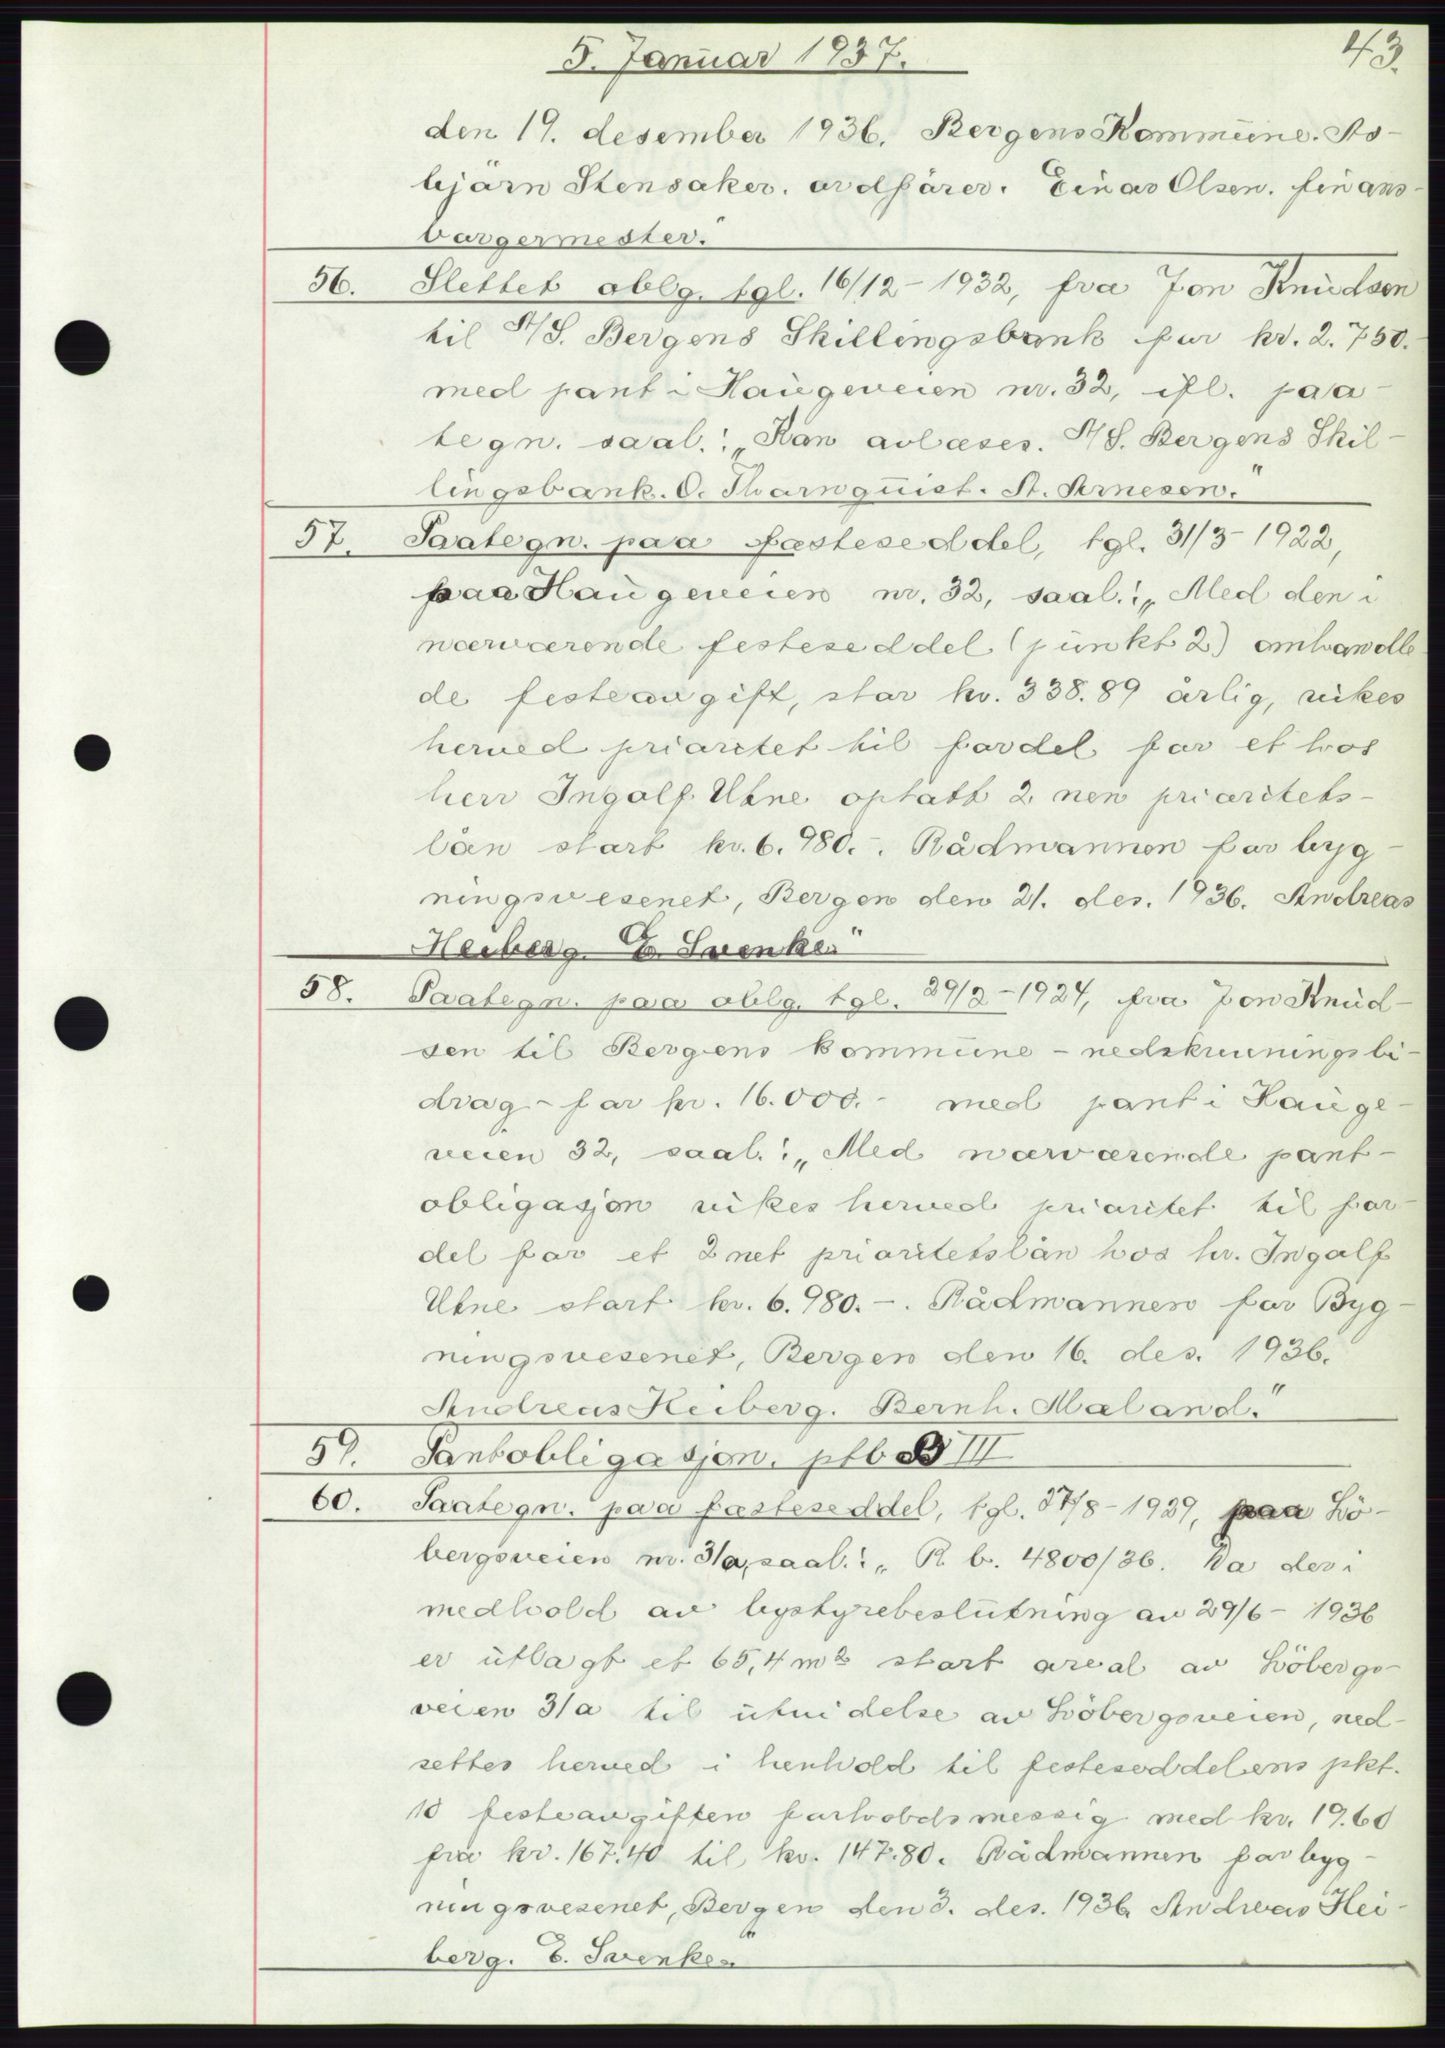 5. Januar 1937.
43.
den 19. desember 1936. Bergens Kommune. As-
bjørn Stensaker. ordfører. Einar Olsen. finans-
borgermester."
56. Slettet oblg. tgl. 16/12-1932, fra Jon Knudsen
til A/S. Bergens Skillingsbank for kr. 2.750.
med pant i Haugeveien nr. 32, ifl. paa-
tegn. saal.: „Kan avlæses. A/S. Bergens Skil-
lingsbank. O. Thornquist. St. Arnesen."
57. Paategn. paa fæsteseddel, tgl. 31/3-1922,
paa Haugeveien nr. 32, saal.: „Med den i
nærværende festeseddel (punkt 2) omhandle-
de festeavgift, stor kr. 338.89 årlig, vikes
herved prioritet til fordel for et hos
herr Ingolf Utne optatt 2 nen prioritets-
lån stort kr. 6.980.-. Rådmannen for byg-
ningsvesenet, Bergen den 21. des. 1936. Andreas
Heiberg. E. Svenke."
58. Paategn. paa oblg. tgl. 29/2-1924, fra Jon Knud-
sen til Bergens kommune - nedskrivningsbi-
drag - for kr. 16.000.- med pant i Hauge-
veien 32, saal.: „Med nærværende pant-
obligasjon vikes herved prioritet til for-
del for et 2net prioritetslån hos hr. Ingolf
Utne stort kr. 6.980.-. Rådmannen for Byg-
ningsvesenet, Bergen den 16. des. 1936.
Andreas Heiberg. Bernh. Maland."
59. Pantobligasjon. ptb B III
60. Paategn. paa fæsteseddel, tgl. 27/8-1929, paa Lö-
bergsveien nr. 31a, saal.: „R. b. 4800/36. Da der i
medhold av bystyrebeslutning av 29/6-1936
er utlagt et 65,4 m2 stort areal av Löbergs-
veien 31a til utvidelse av Löbergsveien, ned-
settes herved i henhold til festeseddelens pkt.
10 festeavgiften forholdsmessig med kr. 19.60
fra kr. 167.40 til kr. 147.80. Rådmannen for byg-
ningsvesenet, Bergen den 3. des. 1936. Andreas Hei-
berg. E. Svenke."